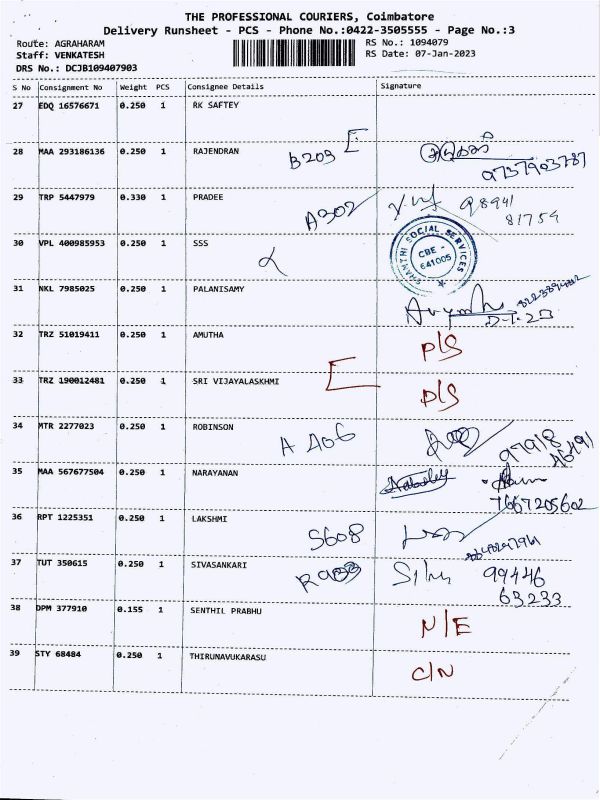 THE PROFESSIONAL COURIERS, Coimbatore
Delivery Runsheet - PCS - Phone No.:0422-3505555 - Page No.:3
Route: AGRAHARAM RS No.: 1094079
Staff: VENKATESH RS Date: 07-Jan-2023
DRS No.: DCJB109407903
S No Consignment No Weight PCS Consignee Details Signature
27 EDQ 16576671 0.250 1 RK SAFTEY
28 MAA 293186136 0.250 1 RAJENDRAN B203
9737903787
29 TRP 5447979 0.330 1 PRADEE A302 98941
81754
30 VPL 400985953 0.250 1 SSS
SHANTHI SOCIAL SERVICES
CBE - 641005
31 NKL 7985025 0.250 1 PALANISAMY
32 TRZ 51019411 0.250 1 AMUTHA D/S
33 TRZ 190012481 0.250 1 SRI VIJAYALASKHMI D/S
34 MTR 2277023 0.250 1 ROBINSON A 406 97918
35 MAA 567677504 0.250 1 NARAYANAN
7667205602
36 RPT 1225351 0.250 1 LAKSHMI S608
37 TUT 350615 0.250 1 SIVASANKARI 99446
63233
38 DPM 377910 0.155 1 SENTHIL PRABHU N/E
39 STY 68484 0.250 1 THIRUNAVUKARASU C/N